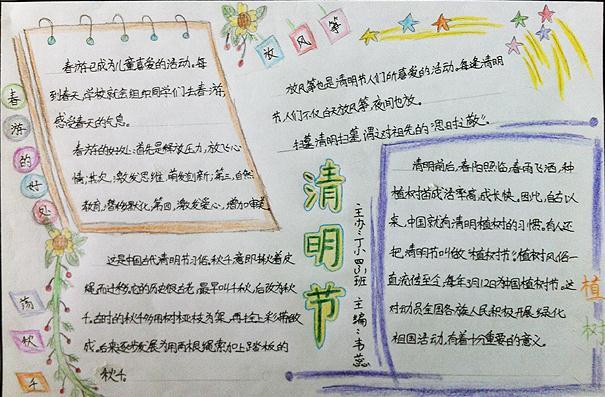 春游的好处
春游已成为儿童喜爱的活动。每
到春天,学校就会组织同学们去春游,
感受春天的气息。
春游的好处:首先是释放压力,放飞心
情;其次,激发思维,萌发创新;第三,自然
教育,潜移默化,第四,激发爱心,增加审美
放风筝
放风筝也是清明节人们所喜爱的活动。每逢清明
节,人们不仅白天放风筝,夜间也放。
扫墓清明扫墓,谓之对祖先的"思时敬"。
清明节
主办:丁小四3班 主编:韦蕊
荡秋千
这是中国古代清明节习俗。秋千意即揪着皮
绳而迁移。它的历史很古老,最早叫千秋,后改为秋
千。古时的秋千多用树桠枝为架,再拴上彩带做
成。后来逐步发展为用两根绳索加上踏板的
秋千。
植树
清明前后,春阳照临,春雨飞洒,种
植树苗成活率高,成长快。因此,自古以
来,中国就有清明植树的习惯。有人还
把清明节叫做"植树节"。植树风俗一
直流传至今,每年3月12日为中国植树节。这
对动员全国各族人民积极开展绿化
祖国活动,有着十分重要的意义。